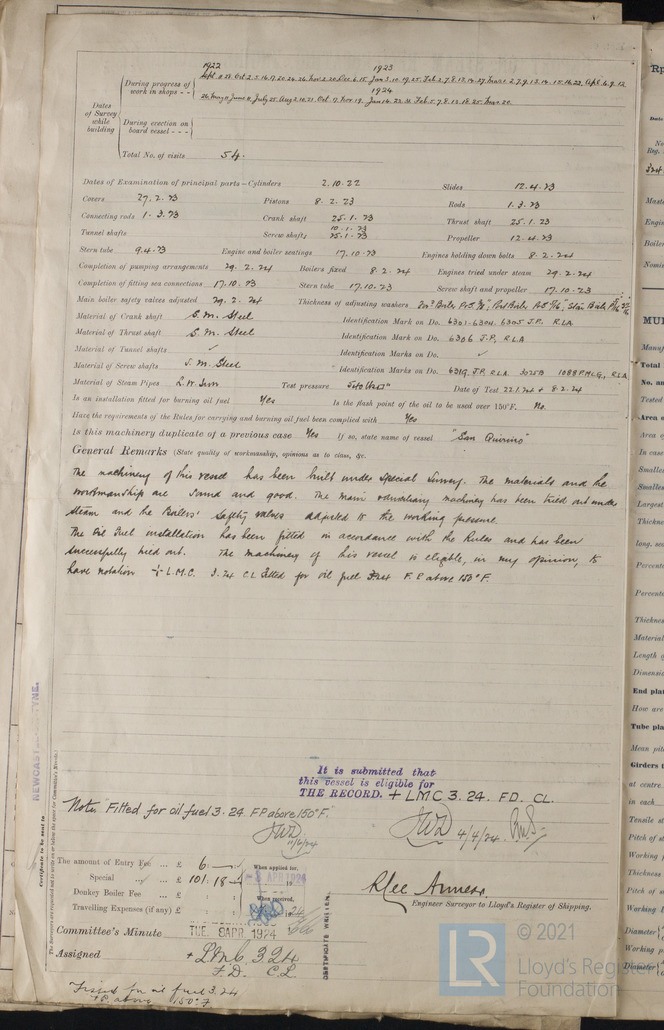 1922 1923
During progress of work in shops - -
Sept 8 28. Oct 2. 5. 16. 17. 20. 24. 26. Nov 2. 20. Dec 6. 15. Jan 3. 10. 19. 25. Feb 2. 7. 8. 13. 14. 27. Mar 1. 2. 7. 9. 13. 14. 15. 16. 22. Apl 6. 9. 12
1924
Dates of Survey while building
During erection on board vessel - - -
Total No. of visits 54.
Dates of Examination of principal parts—Cylinders 2.10.22 Slides 12.4.23
Covers 27.2.23 Pistons 8.2.23 Rods 1.3.23
Connecting rods 1.3.23 Crank shaft 25.1.23 Thrust shaft 25.1.23
Tunnel shafts Screw shafts 10.1.23 25.1.23 Propeller 12.4.23
Stern tube 9.4.23 Engine and boiler seatings 17.10.23 Engines holding down bolts 8.2.24
Completion of pumping arrangements 29.2.24 Boilers fixed 8.2.24 Engines tried under steam 29.2.24
Completion of fitting sea connections 17.10.23 Stern tube 17.10.23 Screw shaft and propeller 17.10.23
Main boiler safety valves adjusted 29.2.24 Thickness of adjusting washers
Material of Crank shaft S.M. Steel Identification Mark on Do. 6301-6304, 6305 J.P. R.L.A
Material of Thrust shaft S.M. Steel Identification Mark on Do. 6306 J.P. R.L.A
Material of Tunnel shafts ✓ Identification Marks on Do. ✓
Material of Screw shafts S.M. Steel Identification Marks on Do. 6319 J.P. R.L.A 3025B 1088 R.L.A
Material of Steam Pipes L.W. Iron Test pressure 540 lbs □" Date of Test 22.1.24 & 8.2.24
Is an installation fitted for burning oil fuel Yes Is the flash point of the oil to be used over 150°F. No.
Have the requirements of the Rules for carrying and burning oil fuel been complied with Yes
Is this machinery duplicate of a previous case Yes If so, state name of vessel "San Quirino"
General Remarks (State quality of workmanship, opinions as to class, &c.
The machinery of this vessel has been built under Special Survey. The materials and the
workmanship are sound and good. The main & auxiliary machinery has been tried out under
steam and the Boilers' safety valves adjusted to the working pressure.
The Oil Fuel installation has been fitted in accordance with the Rules and has been
successfully tried out. The machinery of this vessel is eligible, in my opinion, to
have notation + L.M.C. 3.24 C.L. fitted for oil fuel 3.24 F.P. above 150°F.
It is submitted that
this vessel is eligible for
THE RECORD. + LMC 3.24. FD. CL.
Note "Fitted for oil fuel 3.24. FP above 150°F."
JWD 4/4/24
The amount of Entry Fee ... £ 6
Special ... £ 101 : 18
Donkey Boiler Fee ... £
Travelling Expenses (if any) £
When applied for,
-3 APR 1924
When received,
Engineer Surveyor to Lloyd's Register of Shipping.
Committee's Minute TUE. 8 APR. 1924
Assigned + LMC 3.24
F.D. C.L.
Fitted for oil fuel 3.24
FP above 150°F
CERTIFICATE WRITTEN
Certificate to be sent to
© 2021
Lloyd's Register
Foundation